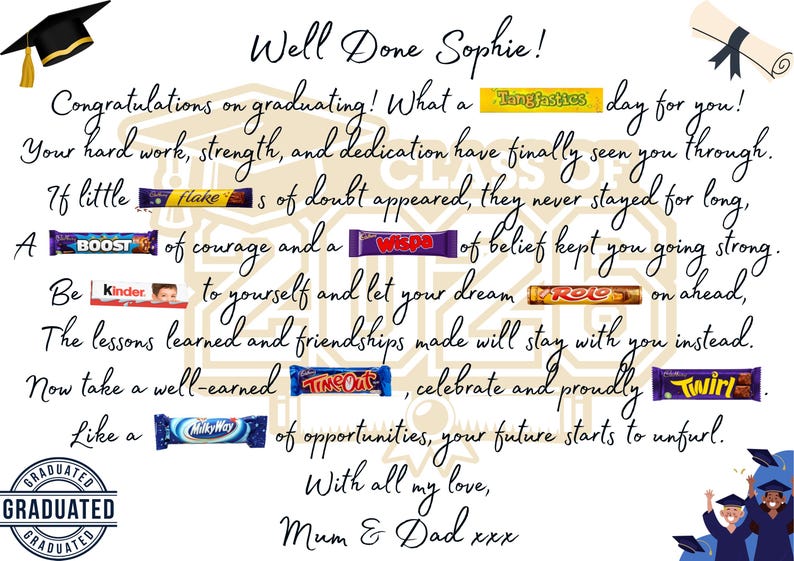 Well Done Sophie!
Congratulations on graduating! What a Tangfastics day for you!
Your hard work, strength, and dedication have finally seen you through.
If little Cadbury flake s of doubt appeared, they never stayed for long,
A Cadbury BOOST of courage and a Cadbury Wispa of belief kept you going strong.
Be Kinder to yourself and let your dream ROLO on ahead,
The lessons learned and friendships made will stay with you instead.
Now take a well-earned Cadbury TimeOut, celebrate and proudly Cadbury Twirl.
Like a MilkyWay of opportunities, your future starts to unfurl.
With all my love,
Mum & Dad xxx
CLASS OF
2026
GRADUATED
GRADUATED
GRADUATED